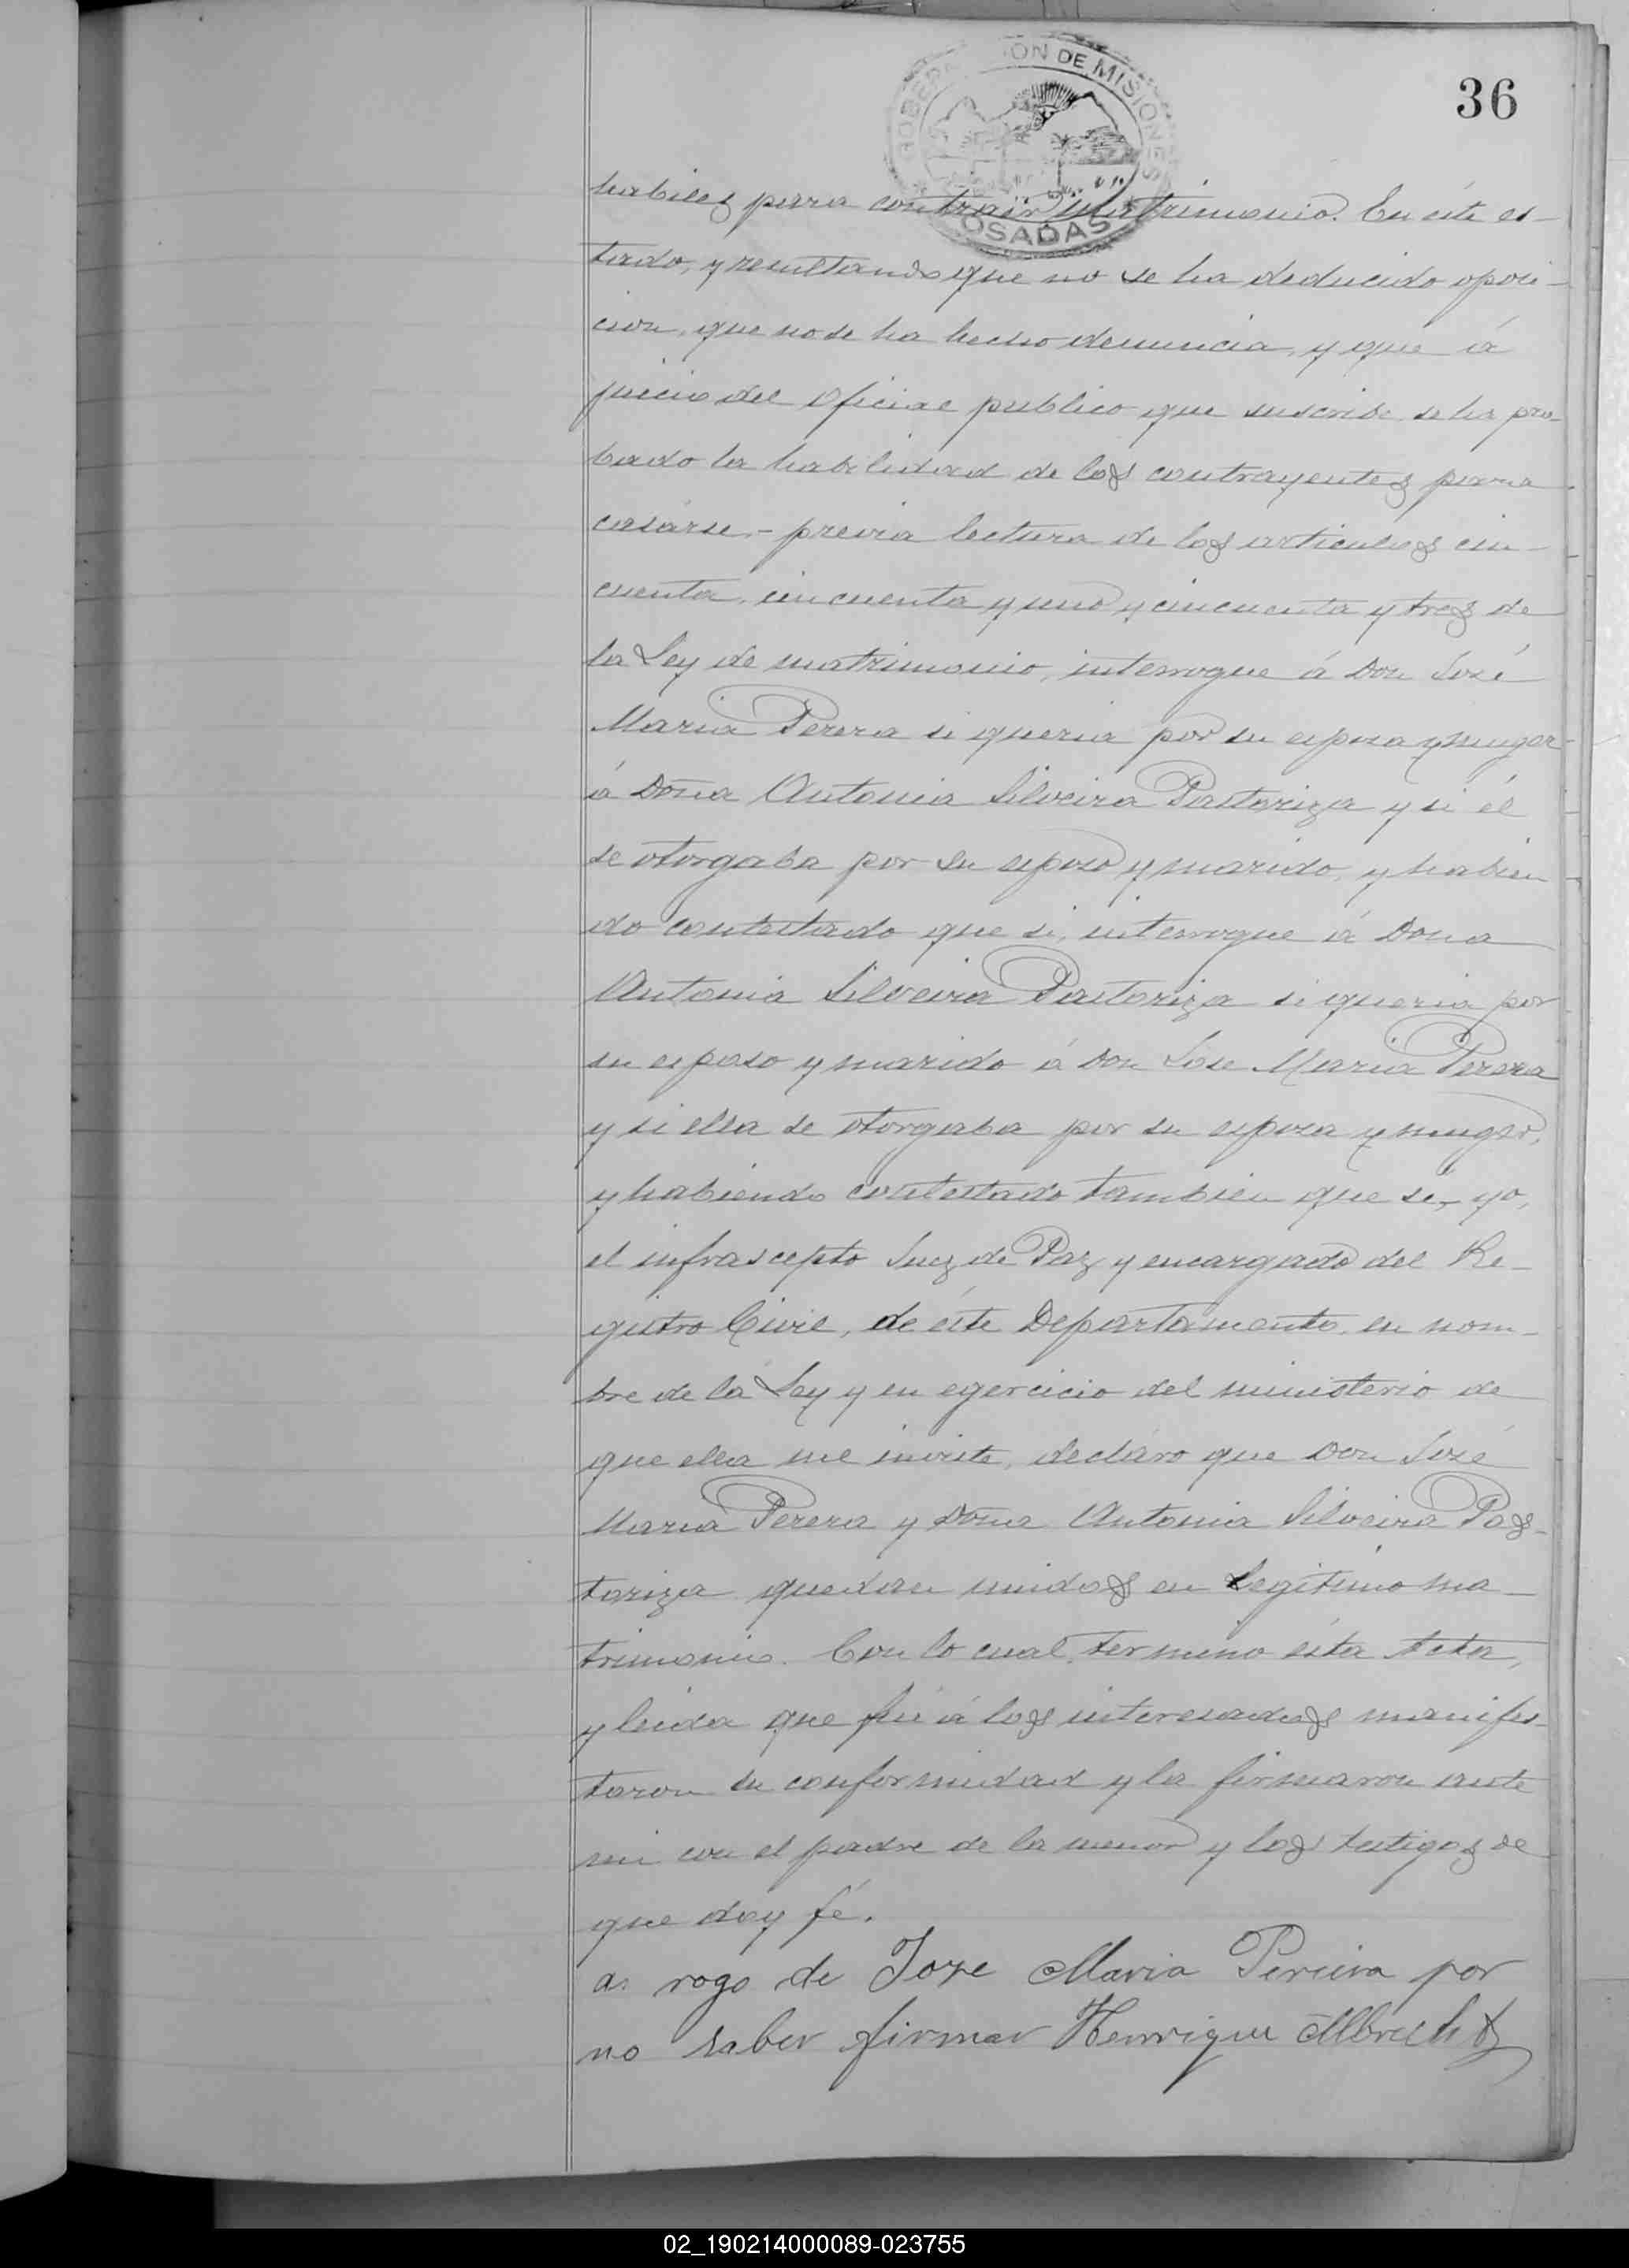 GOBERNACION DE MISIONES
36
POSADAS
habiles para contraer matrimonio. En éste es-
tado, y resultando que no se ha deducido oposi-
cion, que no se ha hecho denuncia, y que á
juicio del oficial publico que suscribe se ha pro-
bado la habilidad de los contrayentes para
casárse,- previa lectura de los articulos cin-
cuenta, cincuenta y uno y cincuenta y tres de
la Ley de matrimonio, interrogue á Don José
Maria Perera si queria por su esposa y muger
á Doña Antonia Silveira Pastoriza y si él
se otorgaba por su esposo y marido, y habien
do contestado que si, interrogue á Dona
Antonia Silveira Pastoriza si queria por
su esposo y marido á Don Jose Maria Perera
y si ella se otorgaba por su esposa y muger,
y habiendo contestado tambien que si, yo,
el infrascepto Juez de Paz y encargado del Re-
gistro Civil, de éste Departamento, en nom-
bre de la Ley y en egercicio del ministerio de
que ella me inviste, decláro que Don José
Maria Perera y Doña Antonia Silveira Pas-
toriza quedan unidos en Legitimo ma-
trimonio. Con lo cual termino ésta acta,
y leida que fué á los interesados manifes-
taron su conformidad y la firmaron ante
mi con el padre de la menor y los testigos de
que doy fé.
a rogo de Joze Maria Pereira por
no saber firmar Henrique Albrecht
02_190214000089-023755